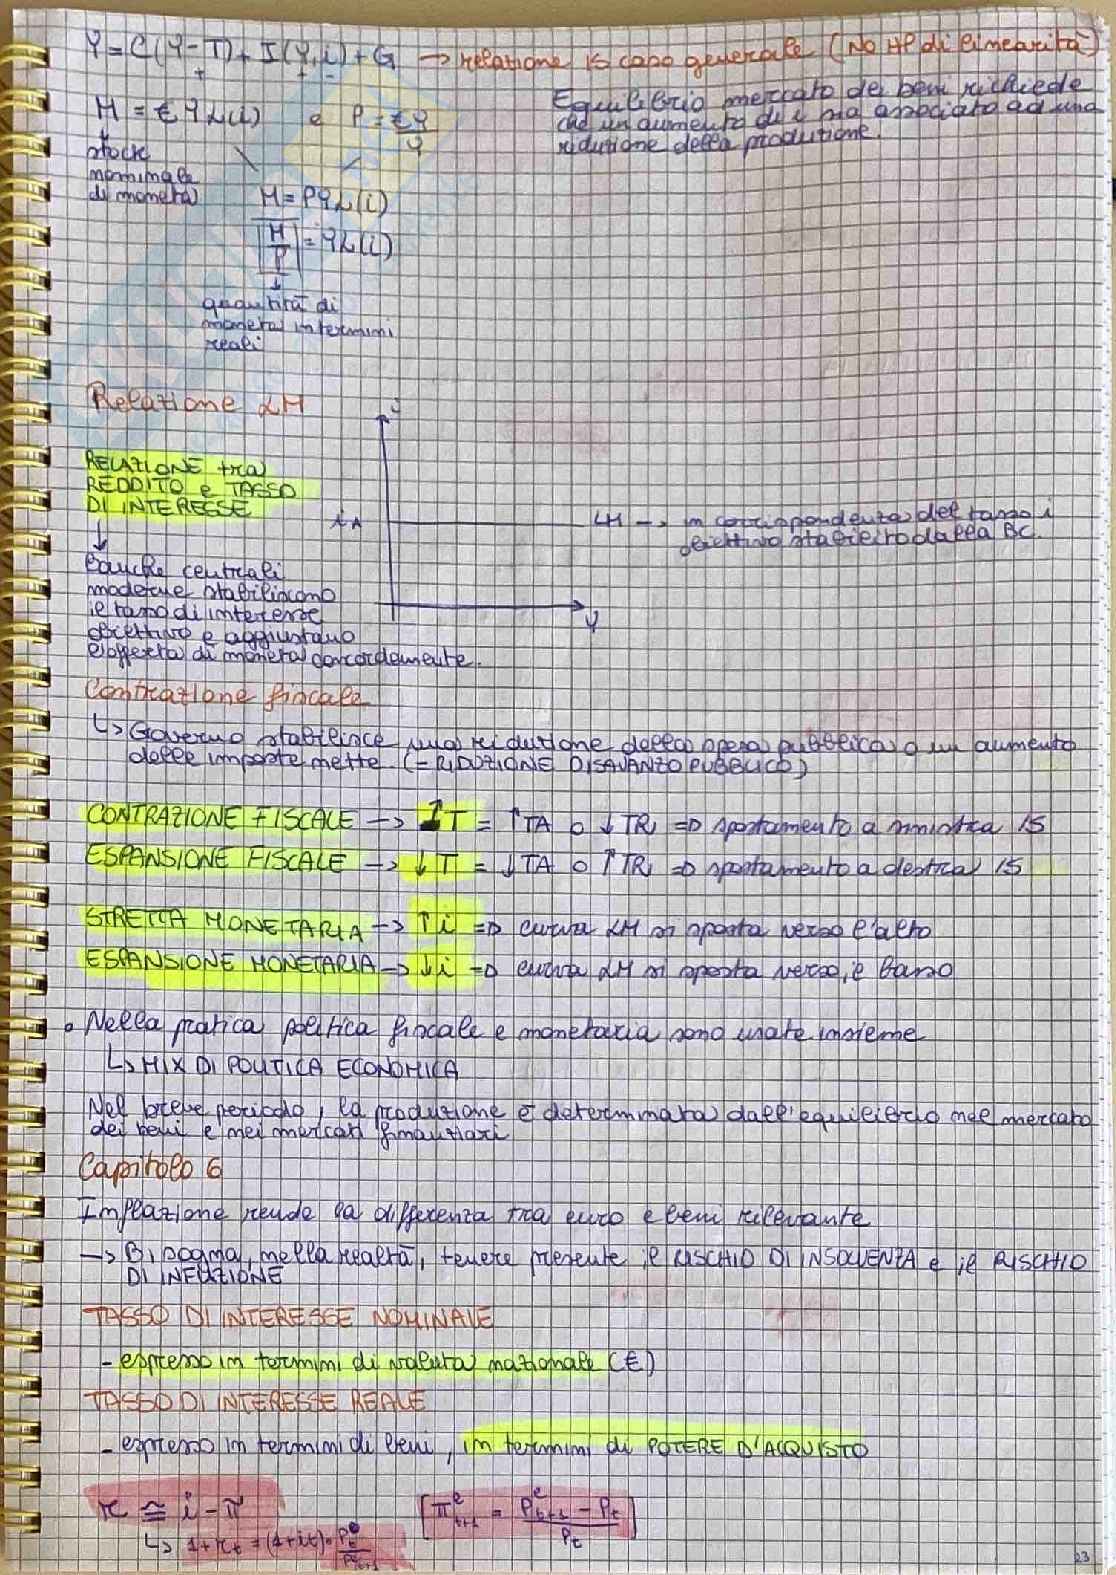 Y = C(Y-T) + I(Y,i) + G → relazione IS caso generale (No HP di linearità)
+ + -
Equilibrio mercato dei beni richiede
che un aumento di i sia associato ad una
riduzione della produzione.
M = €Y L(i) e P = €Y/Y
stock
nominale
di moneta
M = PY L(i)
M/P = Y L(i)
quantità di
moneta in termini
reali
Relazione LM
i
RELAZIONE tra
REDDITO e TASSO
DI INTERESSE
iA
LM → in corrispondenza del tasso i
obiettivo stabilito dalla BC.
Y
banche centrali
moderne stabiliscono
il tasso di interesse
obiettivo e aggiustano
l'offerta di moneta concordemente.
Contrazione fiscale
↳ Governo stabilisce una riduzione della spesa pubblica o un aumento
delle imposte nette. (= RIDUZIONE DISAVANZO PUBBLICO)
CONTRAZIONE FISCALE → ↑T = ↑TA o ↓TR ⇒ spostamento a sinistra IS
ESPANSIONE FISCALE → ↓T = ↓TA o ↑TR ⇒ spostamento a destra IS
STRETTA MONETARIA → ↑i ⇒ curva LM si sposta verso l'alto
ESPANSIONE MONETARIA → ↓i ⇒ curva LM si sposta verso il basso
• Nella pratica politica fiscale e monetaria sono usate insieme
↳ MIX DI POLITICA ECONOMICA
Nel breve periodo, la produzione è determinata dall'equilibrio nel mercato
dei beni e nei mercati finanziari
Capitolo 6
Inflazione rende la differenza tra euro e beni rilevante
→ Bisogna, nella realtà, tenere presente il RISCHIO DI INSOLVENZA e il RISCHIO
DI INFLAZIONE
TASSO DI INTERESSE NOMINALE
- espresso in termini di valuta nazionale (€)
TASSO DI INTERESSE REALE
- espresso in termini di beni, in termini di POTERE D'ACQUISTO
r ≅ i - π [π^e_t+1 = (P^e_t+1 - P_t)/P_t]
↳ 1+r_t = (1+i_t) · P_t/P^e_t+1
23